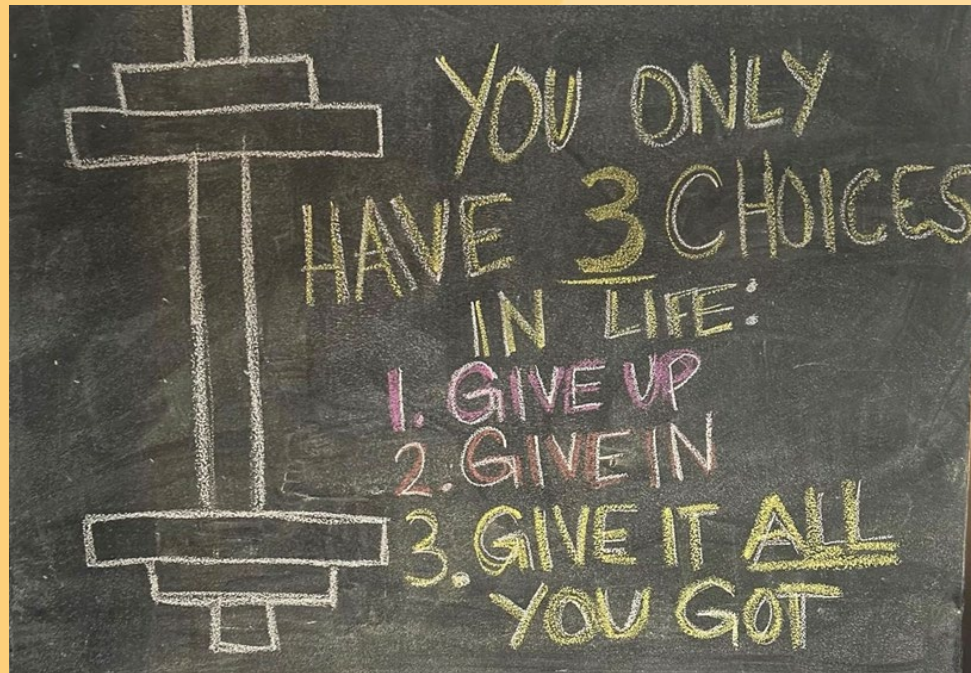 YOU ONLY
HAVE 3 CHOICES
IN LIFE:
1. GIVE UP
2. GIVE IN
3. GIVE IT ALL
YOU GOT